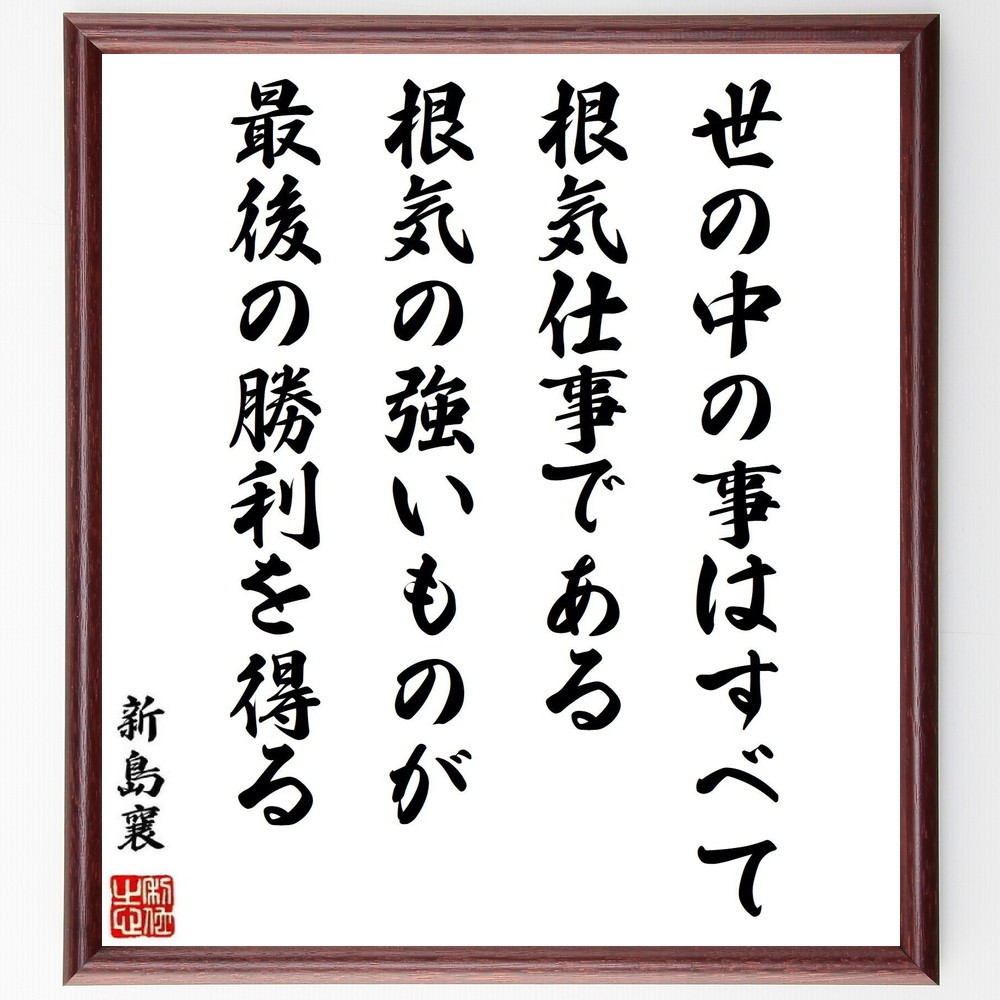 世の中の事はすべて
根気仕事である
根気の強いものが
最後の勝利を得る
新島襄